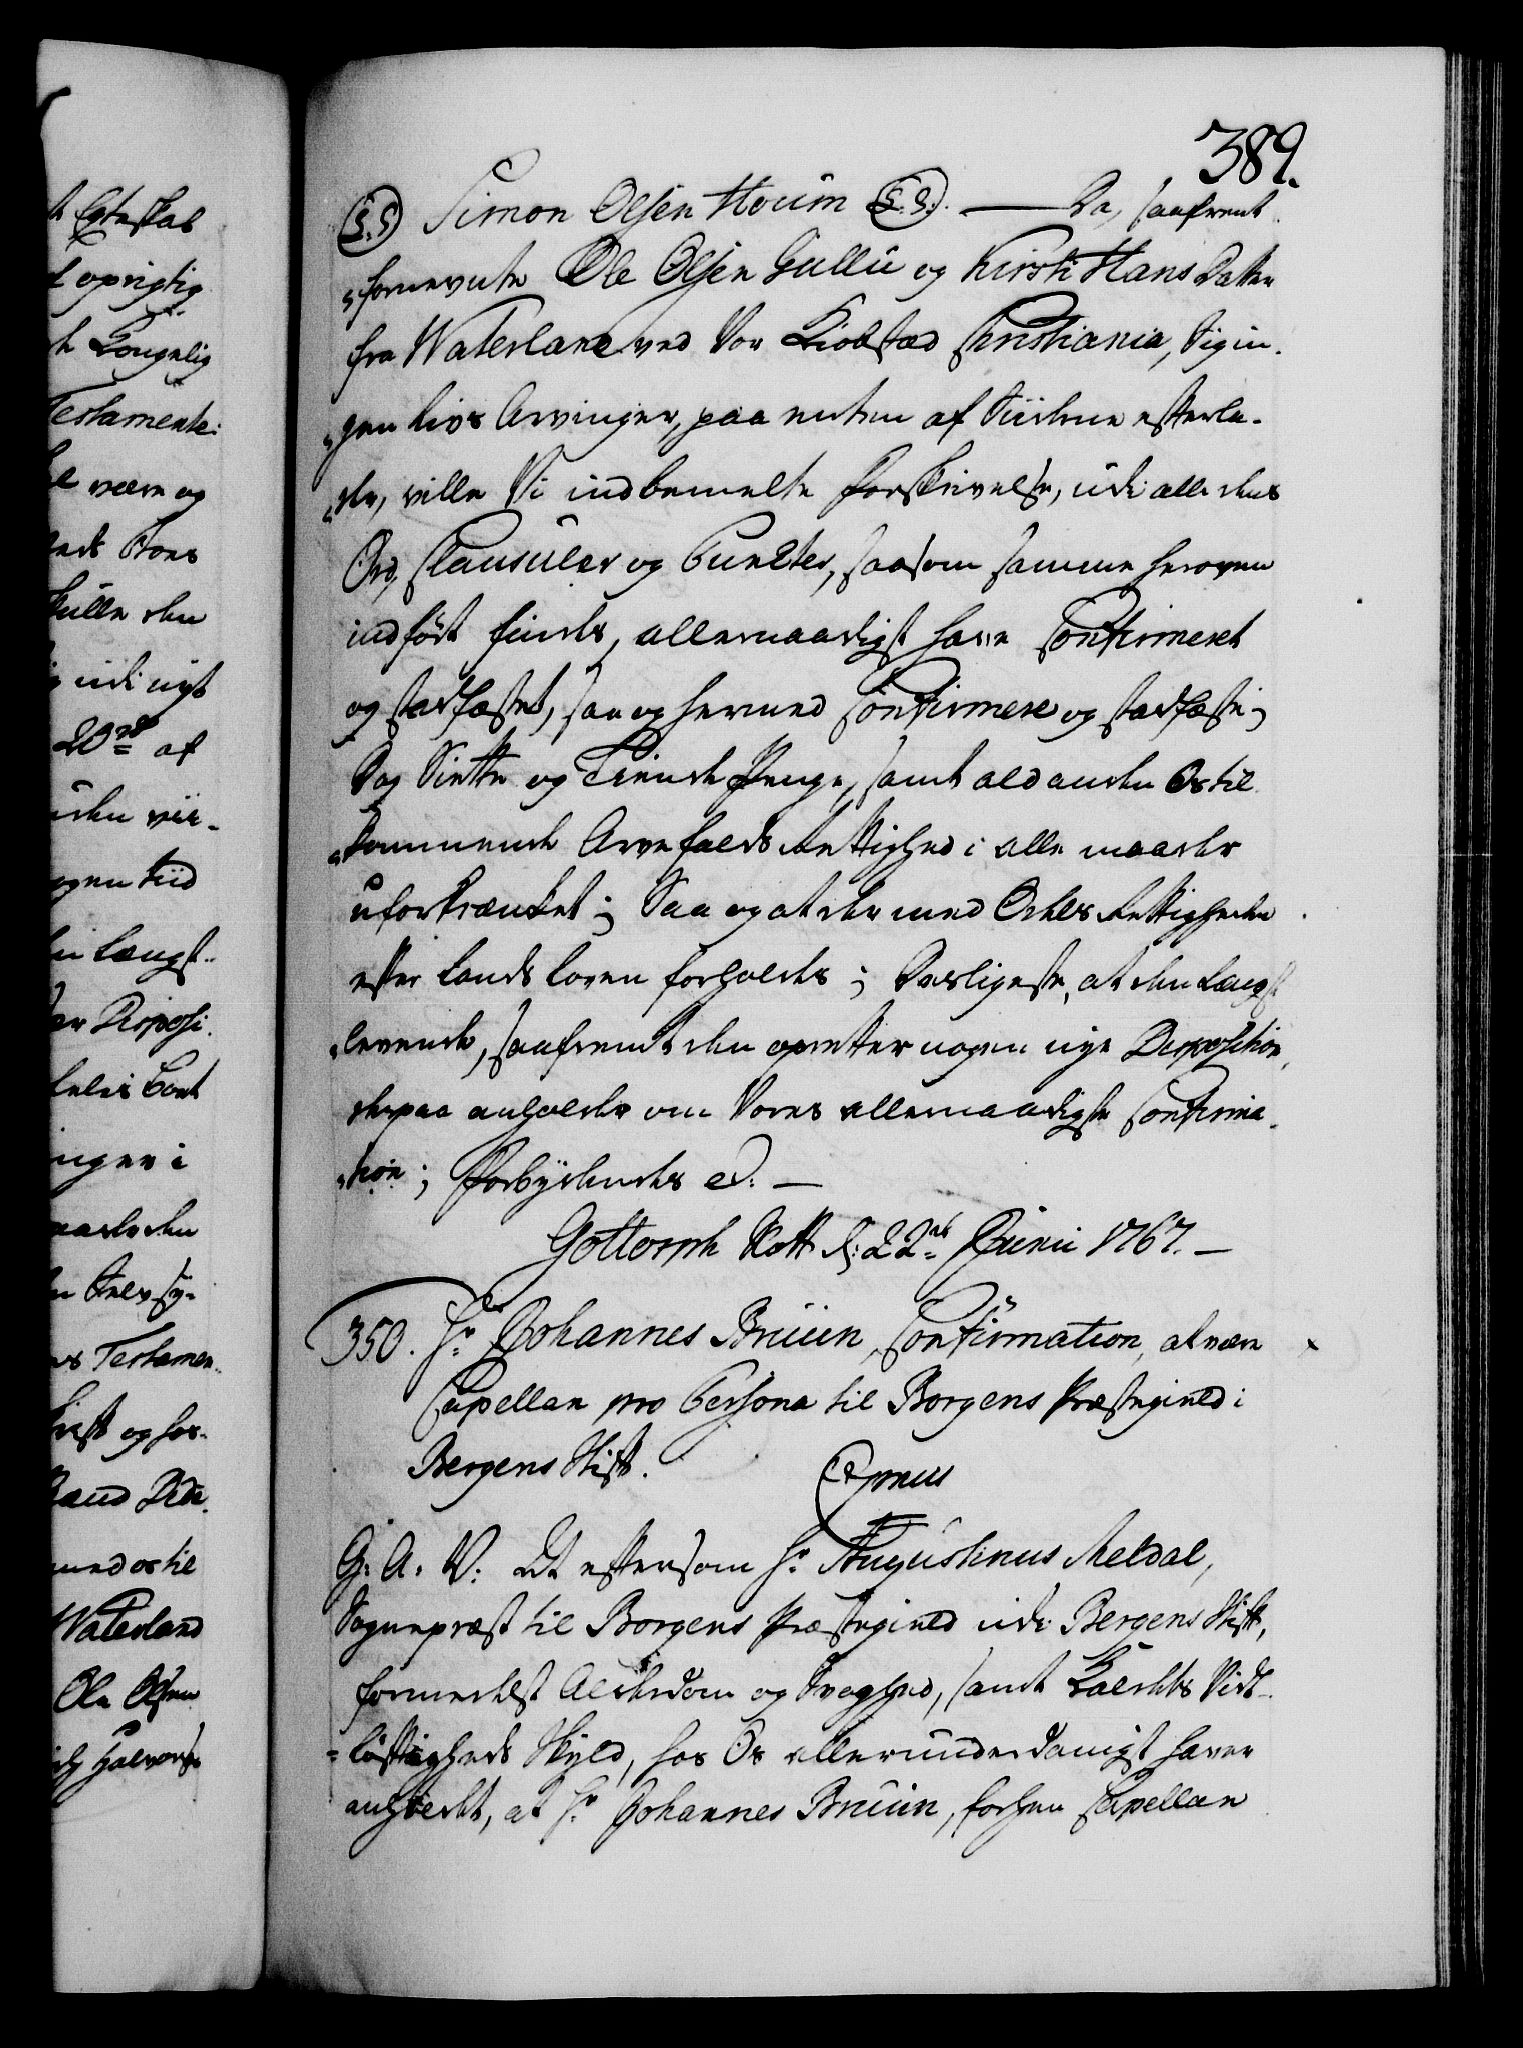 389.
(L.S.) Simon Olsen Houm (L.S.). — Da, saafremt
fornevnte Ole Olsen Gullu og Kirsti Hans Datter
fra Waterland ved Vor Kiøbstæd Christiania, Sig in-
gen Livs Arvinger, paa enten af Siiderne efterla-
der, ville Vi indbemelte Forskrivelse, udi alle dens
Ord, Clausuler og Puncter, saasom samme heroven
indført findes, allernaadigst have Confirmeret
og stadfæstet, saa og hermed Confirmere og stadfæste;
Dog Siette og Tiende Penge, samt ald anden Os til
kommende Arvefalds Rettighed i alle maader
uforkrænket; Saa og at der med Odels Rettigheder
efter Lands Loven forholdes; Desligeste, at den Længst
levende, saafremt den opretter nogen nye Disposition,
derpaa anholder om Vores allernaadigste Confirma-
tion; Forbydendes &. —
Gottorph Slott d: 22de Junii 1767. —
350. Hr. Johannes Bruun, Confirmation, at være
Capellan pro Persona til Borgens Præstegield i
Bergens Stift. Cronus
G. A. V. At eftersom Hr. Augustinus Meldal,
Sognepræst til Borgens Præstegield udi Bergens Stift,
formedelst Alderdom og Svaghed, samt Kaldets Vidt-
løftigheds Skyld, hos Os allerunderdanigst haver
anholdet, at Hr. Johannes Bruun, forhen Capellan